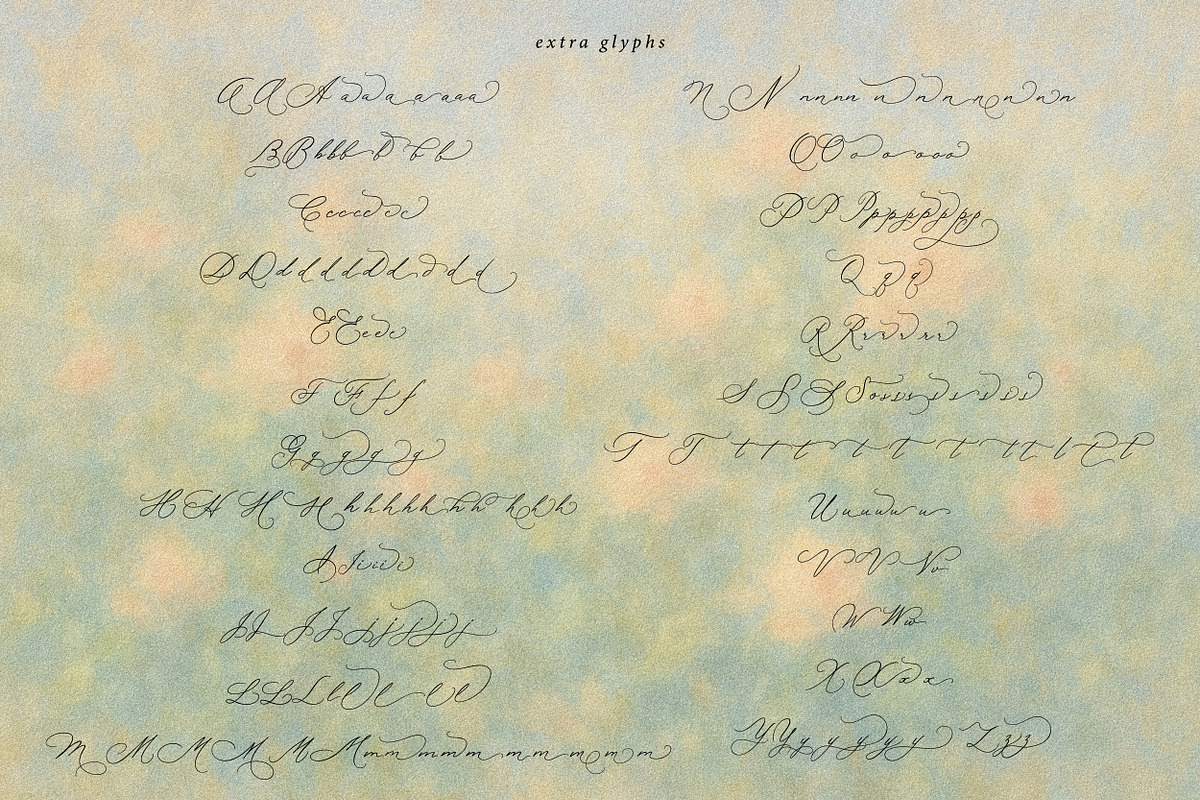 extra glyphs
A A A a a a a a a a a
B B b b b b b b
C c c c c c c
D D d d d d d d d d d d
E E e e e
F F f f
G g g g g
H H H H h h h h h h h h h h
I I i i i
J J J J j j j j j j
L L L l l l l l l
M M M M M M m m m m m m m m m m
N N n n n n n n n n n n n n
O O o o o o o
P P P p p p p p p p
Q q q
R R r r r r r
S S S S o s s s s s s s s
T T t t t t t t t t t t t
U u u u u u
V V V v
W W w
X X x x
Y Y y y y y y Z z z